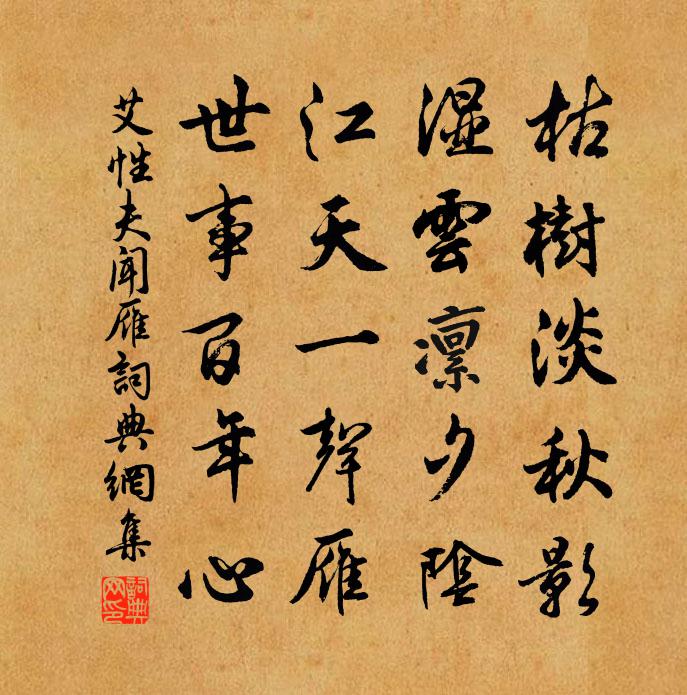 枯樹淡秋影
溼雲凛夕陰
江天一聲雁
世事百年心
艾性夫聞雁詞典網集
詞典網印